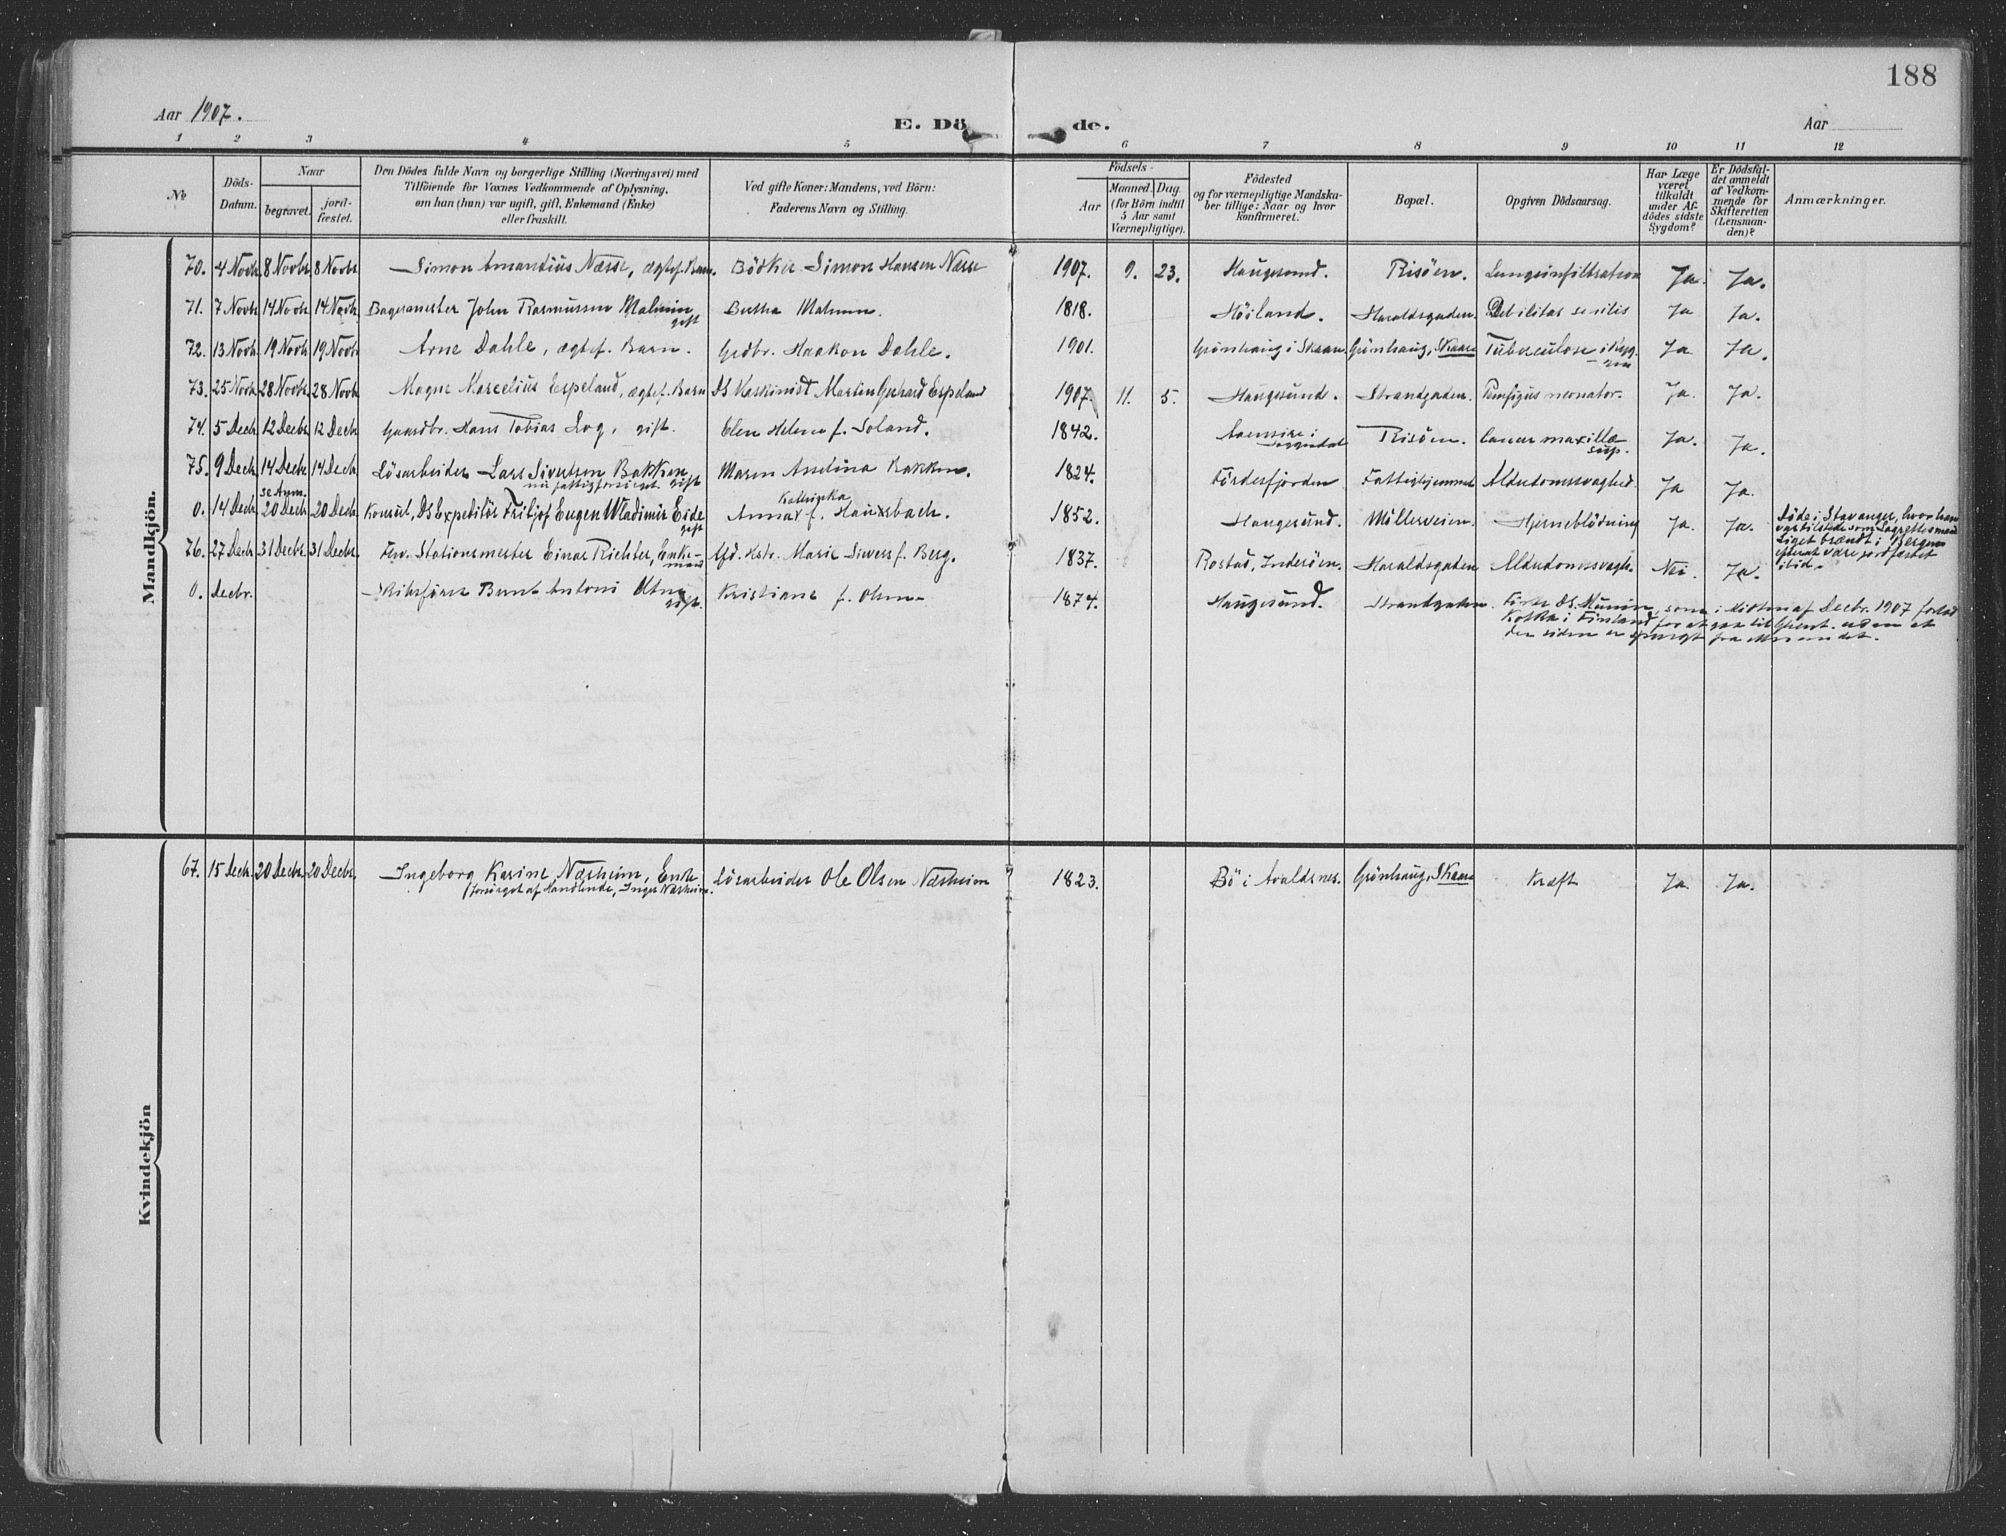 188
Aar 1907.
E. Döde.
Aar
1 2 3 4 5 6 7 8 9 10 11 12
No
Döds-Datum.
Naar
begravet.
jordfæstet.
Den Dödes fulde Navn og borgerlige Stilling (Næringsvei) med
Tilföiende for Voxnes Vedkommende af Oplysning,
om han (hun) var ugift, gift, Enkemand (Enke)
eller fraskilt.
Ved gifte Koner: Mandens, ved Börn:
Faderens Navn og Stilling.
Födsels-
Aar
Maaned. Dag.
(for Börn indtil
5 Aar samt
Værnepligtige).
Födested
og for værnepligtige Mandskaber tillige: Naar og hvor
konfirmeret.
Bopæl.
Opgiven Dödsaarsag.
Har Læge
været
tilkaldt
under Afdödes sidste
Sygdom?
Er Dödsfaldet anmeldt
af Vedkommende for
Skifteretten
(Lensmanden)?
Anmærkninger.
Mandkjön.
70. 4 Novbr 8 Novbr 8 Novbr Simon Amandius Næsse, ægtef. Barn. Bödker Simon Hansen Næsse 1907. 9. 23. Haugesund. Risöen. Lungeinfiltration Ja Ja.
71. 7 Novbr 14 Novbr 14 Novbr Bagermester John Rasmussen Malmin gift Bertha Malmin. 1818. Höiland. Haraldsgaden. Debilitas senilis Ja Ja.
72. 13 Novbr 19 Novbr 19 Novbr Arne Dahle, ægtef. Barn. Grdbr. Haakon Dahle. 1901. Grönhaug i Skaare Grönhaug, Skaare Tuberculose i Ryggen Ja Ja.
73. 25 Novbr 28 Novbr 28 Novbr Magne Marcelius Espeland, ægtef. Barn DS Maskinist Martin Gerhard Espeland 1907 11. 5. Haugesund. Strandgaden. Pemfigus neonator. Ja Ja.
74. 5 Decbr 12 Decbr 12 Decbr Gaardbr. Hans Tobias Log, gift. Elen Helene f. Soland. 1842. Aaensire i Soggendal Risöen. Cancer maxillæ sup. Ja. Ja.
75. 9 Decbr 14 Decbr 14 Decbr Lösarbeider Lars Sivertsen Bakken nu fattigforsörget gift Maren Andina Bakken. 1824. Fördesfjorden Fattighjemmet Alderdomssvaghed. Ja Ja.
se Anm.
0. 14 Decbr 20 Decbr 20 Decbr Konsul, DS Expeditör Fritjof Eugen Wladimir Eide gift Anna Kathinka f. Hansbach. 1852. Haugesund. Möllerveien. Hjerneblödning Ja. Ja. Döde i Stavanger, hvor han
var tilstede som Lagrettesmand
Liget brændt i Bergen
efterat være jordfæstet
itid.
76. 27 Decbr 31 Decbr 31 Decbr Fhv. Stationsmester Einar Richter, Enkemand Afd. Hstr. Marie Sivers f. Berg. 1837. Rostad, Inderöen. Haraldsgaden Alderdomssvagh. Nei. Ja.
0. Decbr. Skibsförer Bernt Antoni Utne gift. Kristiane f. Olsen 1874. Haugesund. Strandgaden. Förte DS. Munin, som i Midten af Decbr. 1907 forlod
Kotka i Finland for at gaa til Ghent, uden at
der siden er spurgt fra Mandet.
Kvindekjön
67. 15 Decbr. 20 Decbr. 20 Decbr. Ingeborg Karine Næsheim, Enke Lösarbeider Ole Olsen Næsheim 1823. Bö i Avaldsnes. Grönhaug, Skaare Kræft Ja. Ja.
(forsörget af Handlende, Inger Næsheim.